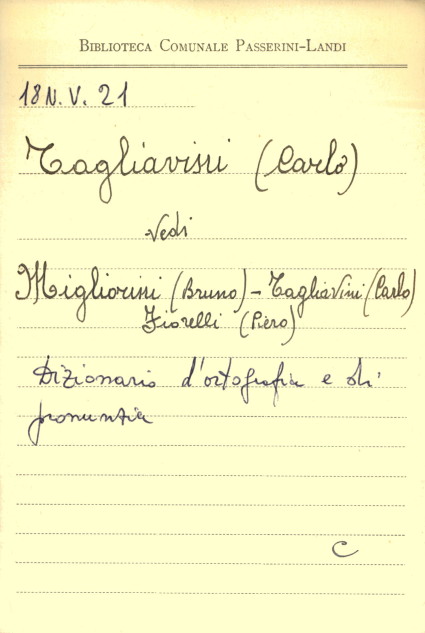 BIBLIOTECA COMUNALE PASSERINI-LANDI
18N.V. 21
Tagliavini (Carlo)
Vedi
Migliorini (Bruno) - Tagliavini (Carlo)
Fiorelli (Piero)
Dizionario d'ortografia e di
pronuntia
C